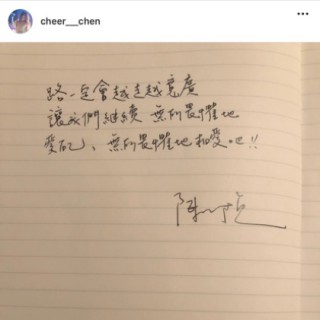 cheer___chen
路一定會越走越寬廣
讓我們繼續 無所畏懼地
愛自己、無所畏懼地相愛吧!!
陳